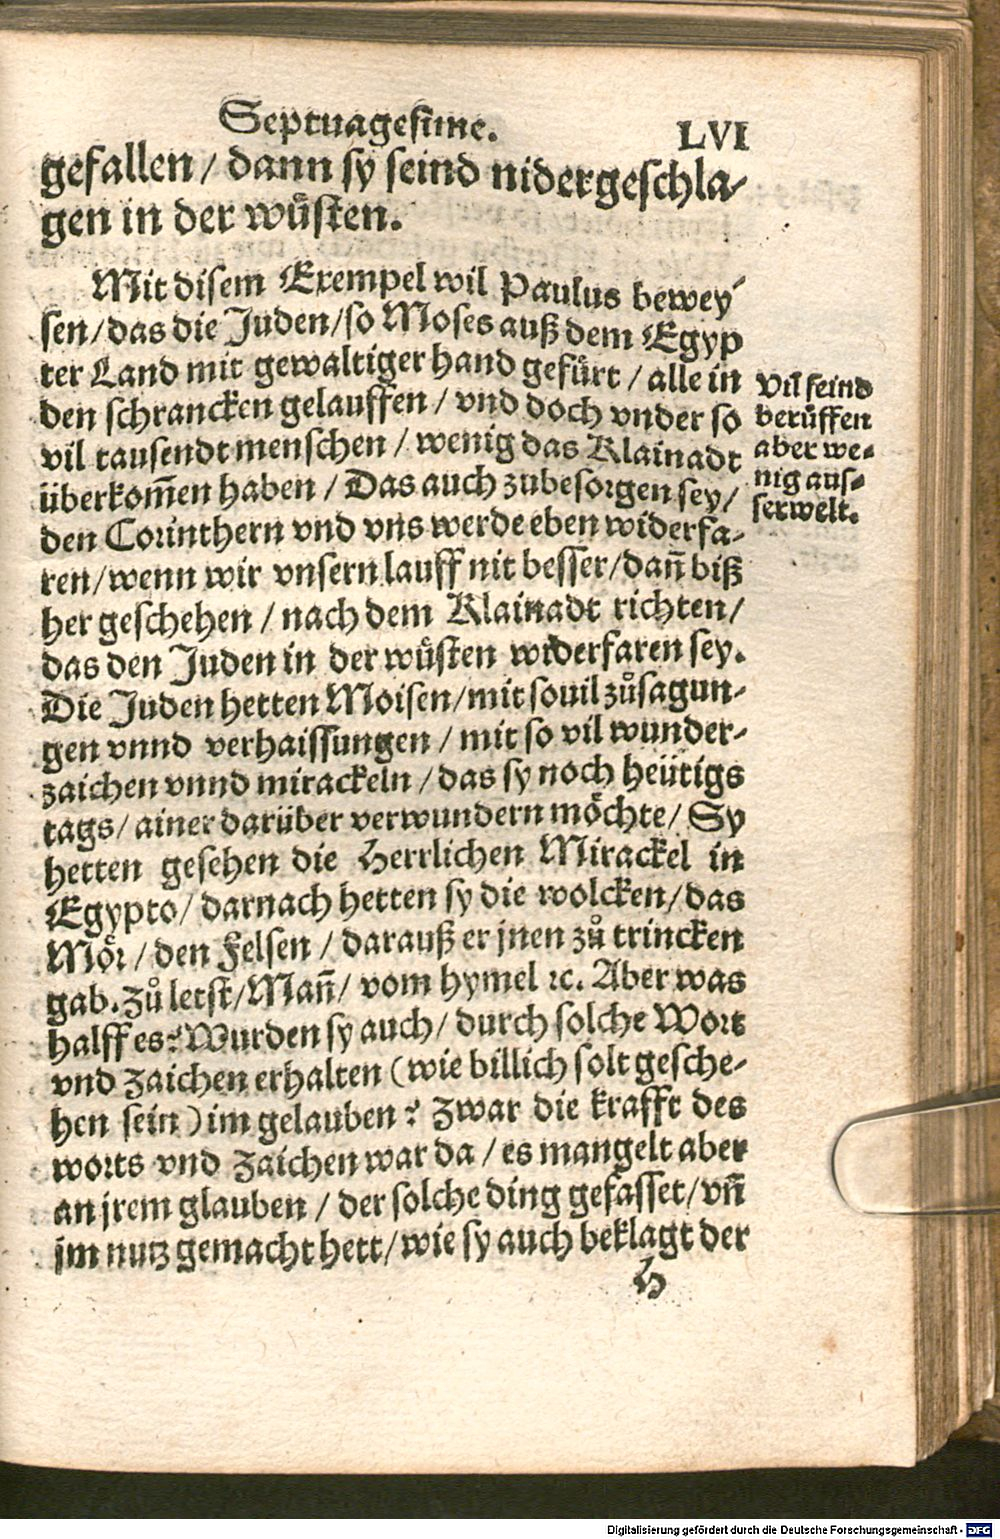 Septuagesime.
LVI
gefallen / dann sy seind nidergeschla⸗
gen in der wuͤsten.
Mit disem Exempel wil Paulus bewey⸗
sen/das die Juden/so Moses auß dem Egyp
ter Land mit gewaltiger hand gefuͤrt / alle in
den schrancken gelauffen / vnd doch vnder so
vil tausendt menschen / wenig das Klainadt
überkom̄en haben / Das auch zubesorgen sey/
den Corinthern vnd vns werde eben widerfa⸗
ren/wenn wir vnsern lauff nit besser/dan̄ biß
her geschehen / nach dem Klainadt richten/
das den Juden in der wuͤsten widerfaren sey.
Die Juden hetten Moisen/mit souil zůsagun⸗
gen vnnd verhaissungen / mit so vil wunder⸗
zaichen vnnd mirackeln / das sy noch heütigs
tags/ ainer darüber verwundern moͤchte/ Sy
hetten gesehen die Herrlichen Mirackel in
Egypto/ darnach hetten sy die wolcken/das
Moͤr / den Felsen / darauß er jnen zů trincken
gab. Zů letst/Man̄/ vom hymel ꝛc. Aber was
halff es? Wurden sy auch/ durch solche Wort
vnd Zaichen erhalten (wie billich solt gesche⸗
hen sein) im gelauben? Zwar die krafft des
worts vnd Zaichen war da / es mangelt aber
an jrem glauben / der solche ding gefasset/vn̄
jm nutz gemacht hett/wie sy auch beklagt der
H
Vil seind
beruͤffen
aber we⸗
nig aus⸗
serwelt.
Digitalisierung gefördert durch die Deutsche Forschungsgemeinschaft - DFG